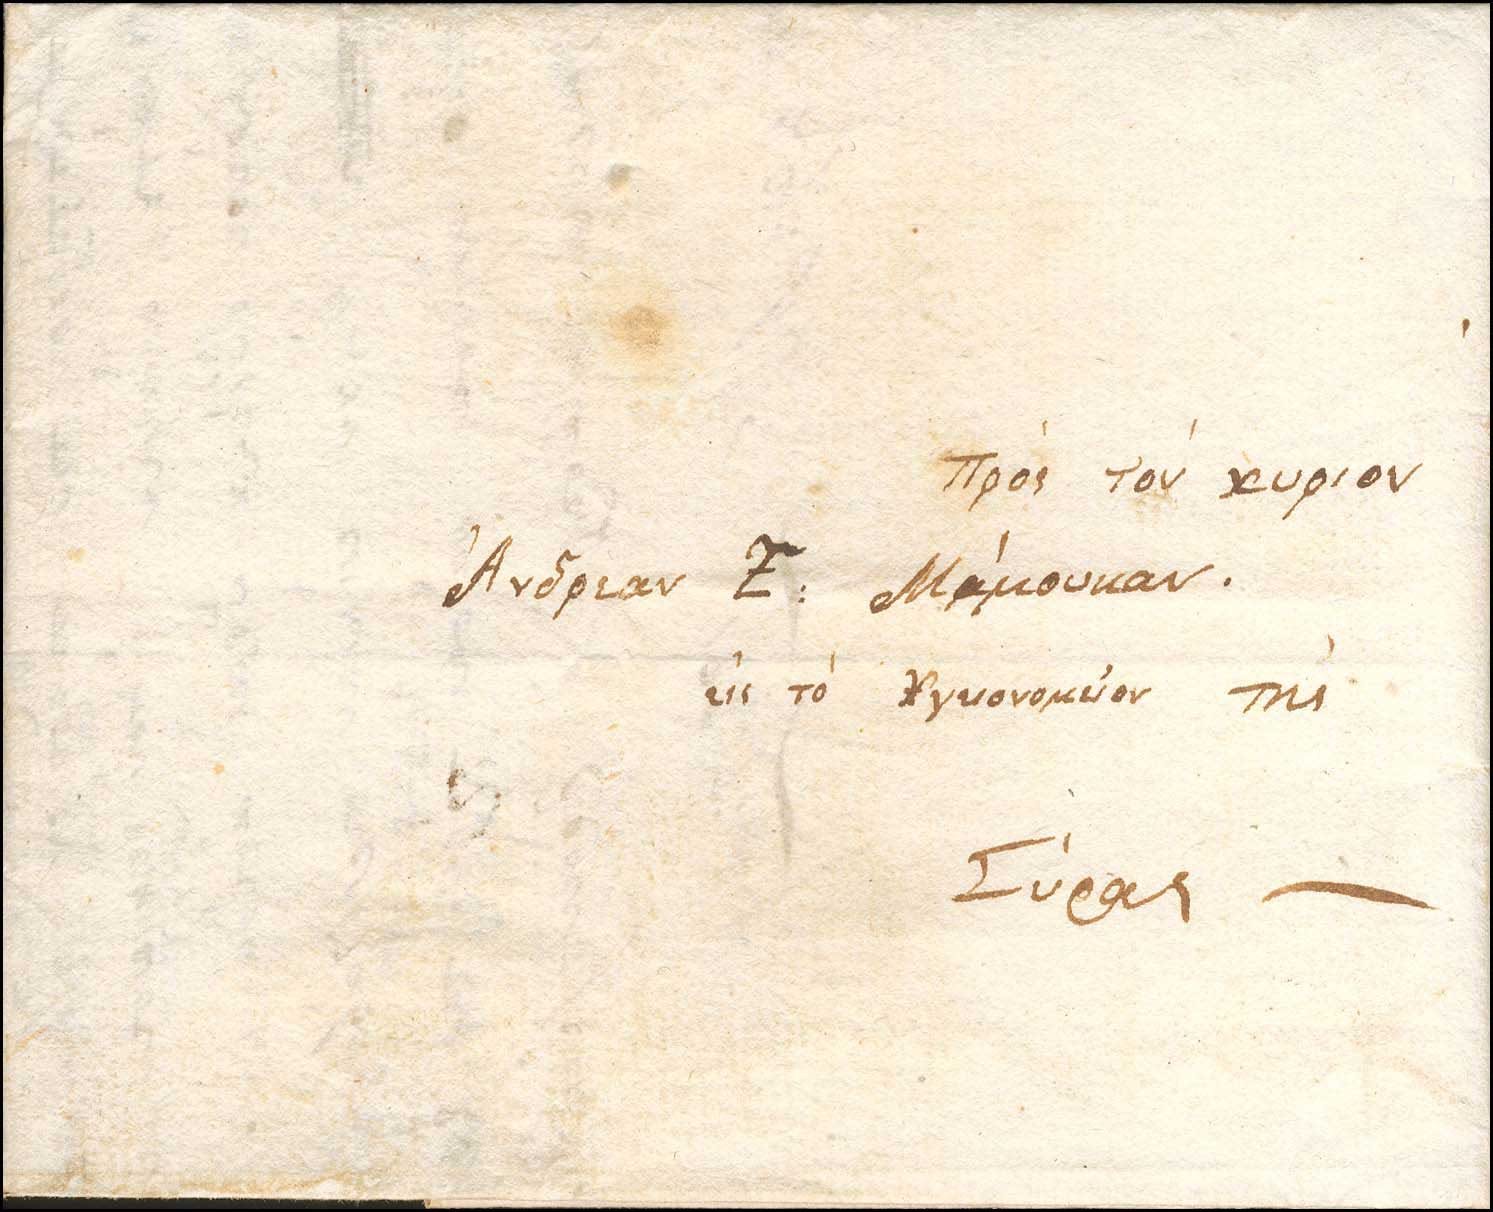 Πρὸς τὸν κυριον
Ἀνδρεαν Ζ: Μάμουκαν.
εἰς τὸ Ὑγειονομεῖον της
Σύρας —